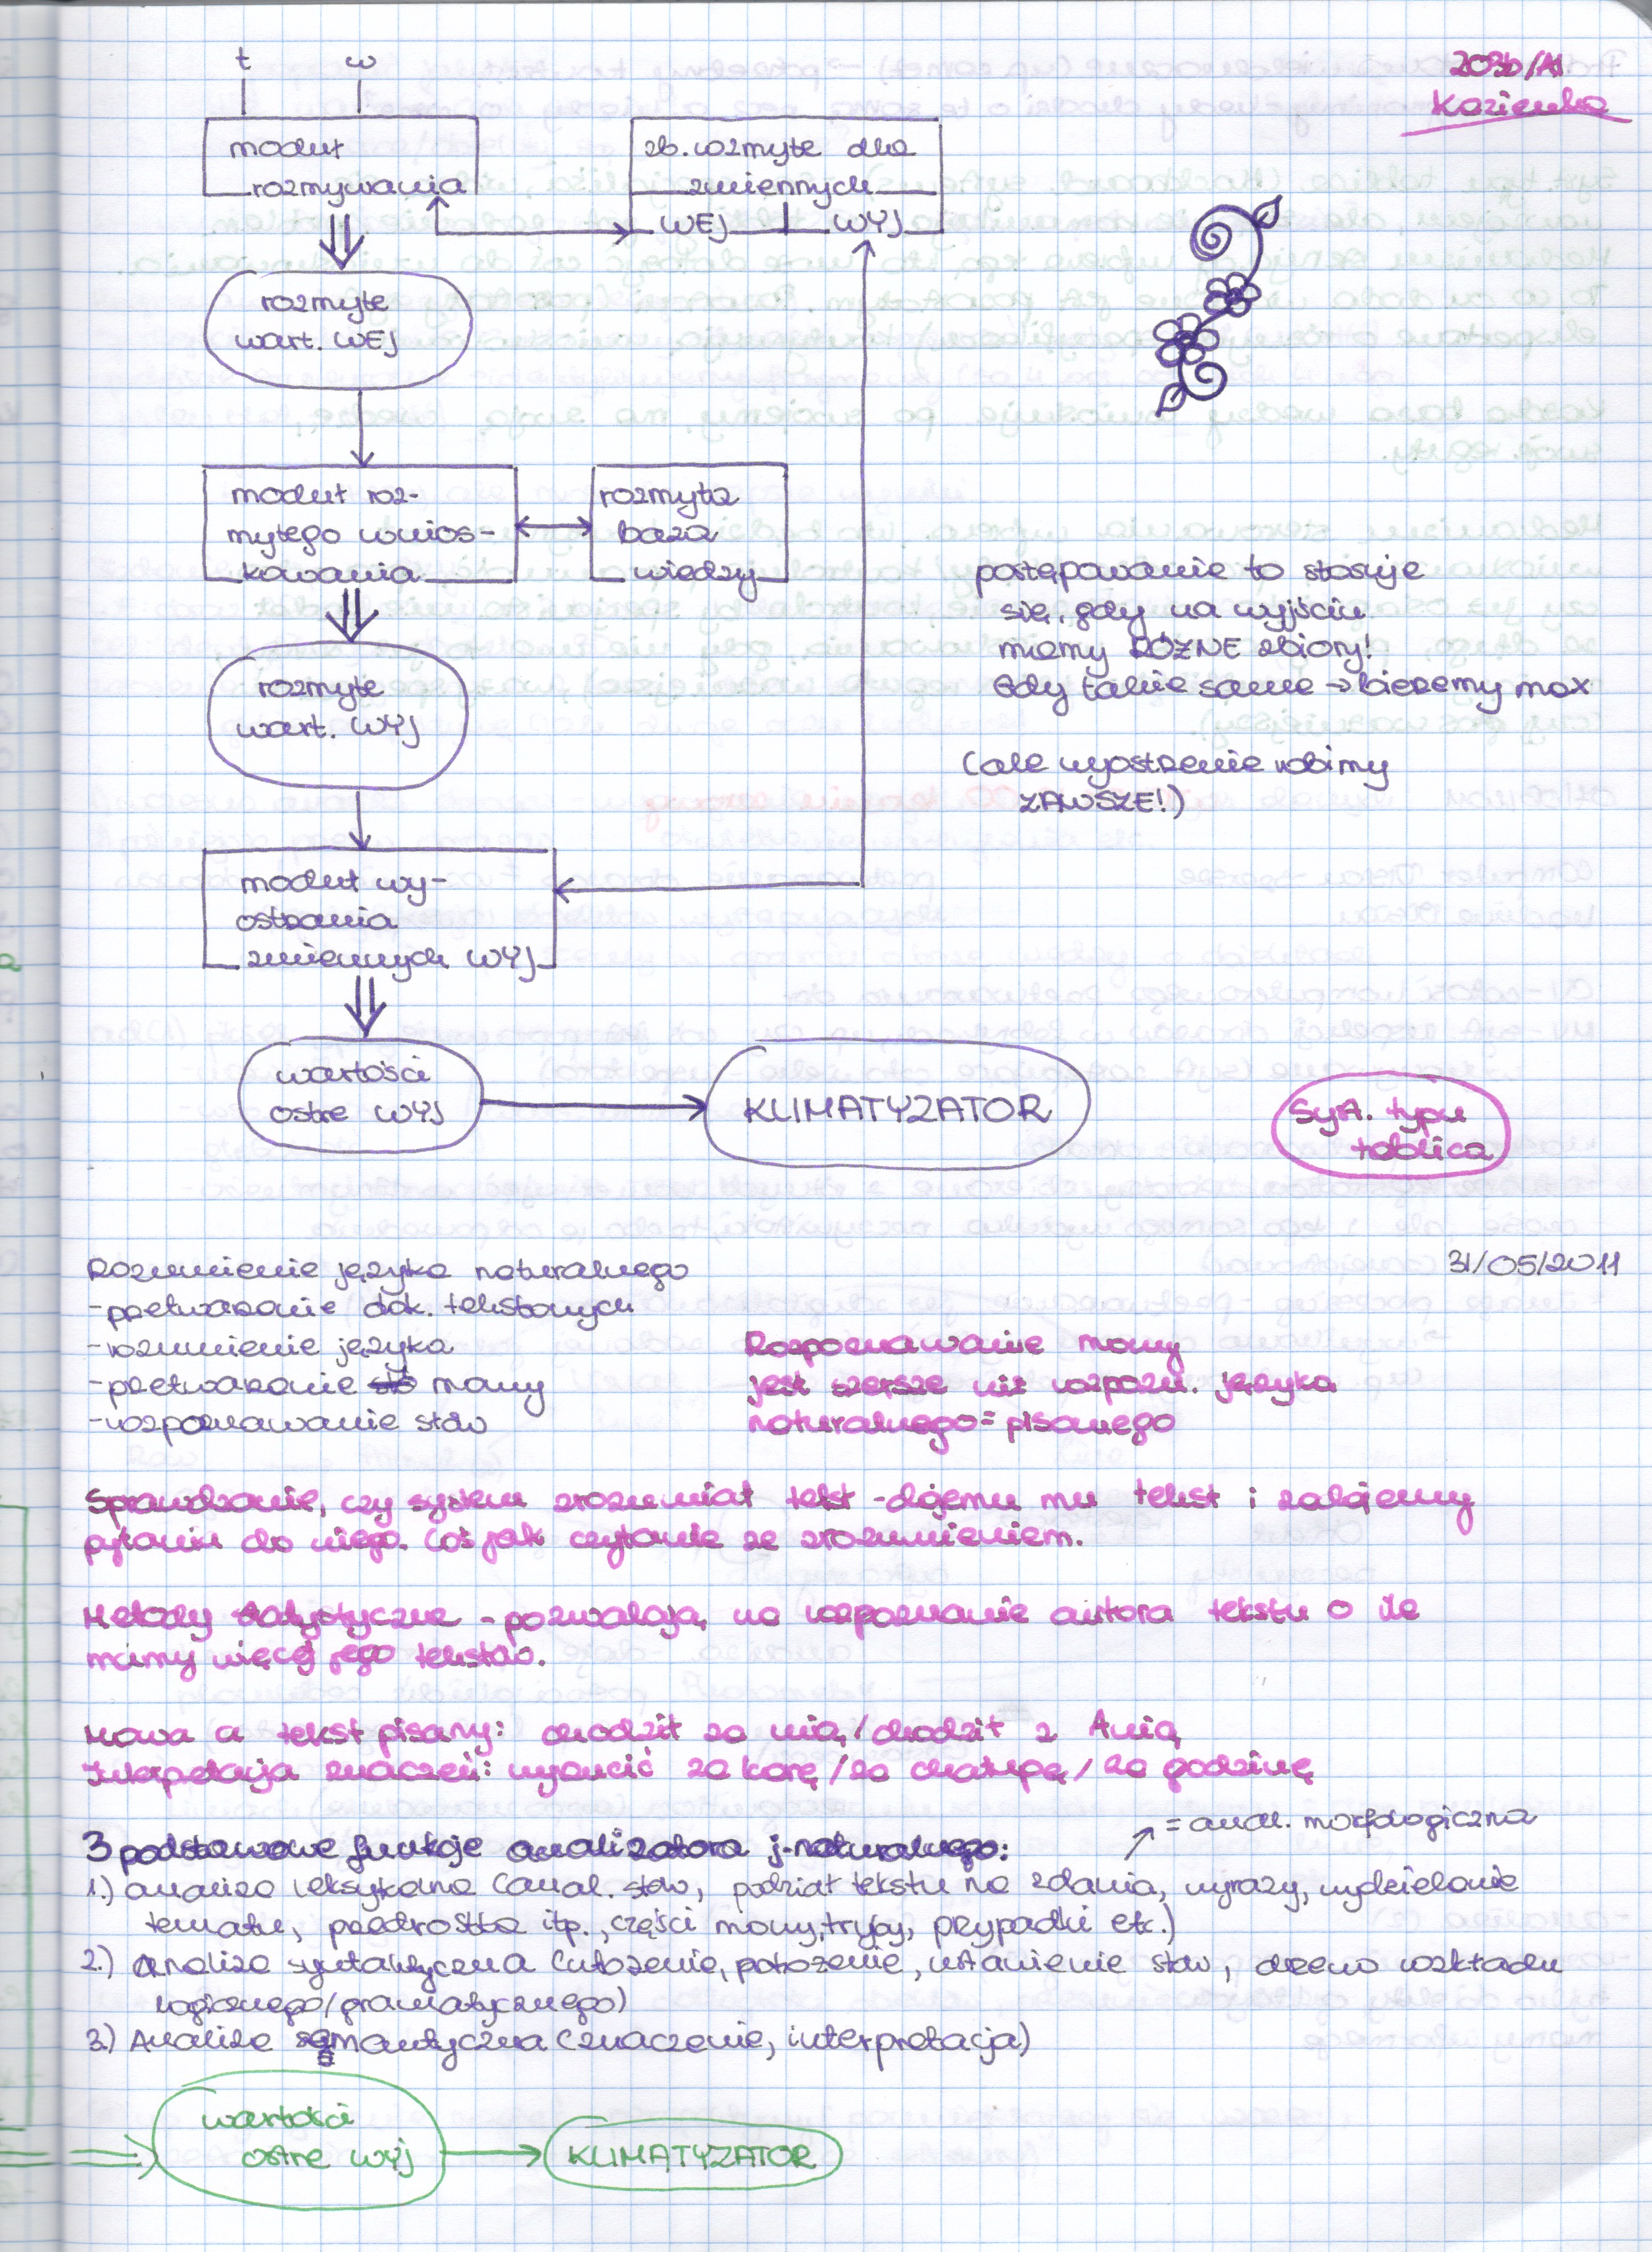 t w
203b/A1
Kozienko
moduł
rozmywania
zb. rozmyte dla
zmiennych
WEJ WYJ
rozmyte
wart. WEJ
moduł roz-
mytego wnios-
kowania
rozmyta
baza
wiedzy
postępowanie to stosuje
się, gdy na wyjściu
mamy RÓŻNE zbiory!
Gdy takie same → bierzemy max
(ale wyostrzenie robimy
ZAWSZE!)
rozmyte
wart. WYJ
moduł wy-
ostrzania
zmiennych WYJ
wartości
ostre WYJ
KLIMATYZATOR
Syst. typu
tablica
31/05/2011
Rozumienie języka naturalnego
- przetwarzanie dok. tekstowych
- rozumienie języka
- przetwarzanie mowy
- rozpoznawanie słów
Rozpoznawanie mowy
jest szersze niż rozpozn. języka
naturalnego = pisanego
Sprawdzanie, czy system zrozumiał tekst - dajemy mu tekst i zadajemy
pytania do niego. Coś jak czytanie ze zrozumieniem.
Metody statystyczne - pozwalają na rozpoznanie autora tekstu o ile
mamy więcej jego tekstów.
Mowa a tekst pisany: chodził za nią / chodził z Anią
Interpretacja znaczeń: wyrzucić za karę / za chałupę / za godzinę
= anal. morfologiczna
3 podstawowe funkcje analizatora j. naturalnego:
1.) analiza leksykalna (anal. słów, podział tekstu na zdania, wyrazy, wydzielanie
tematu, przedrostka itp., części mowy, tryby, przypadki etc.)
2.) Analiza syntaktyczna (ułożenie, położenie, ustawienie słów, drzewo rozkładu
logicznego/gramatycznego)
3.) Analiza semantyczna (znaczenie, interpretacja)
wartości
ostre WYJ
KLIMATYZATOR